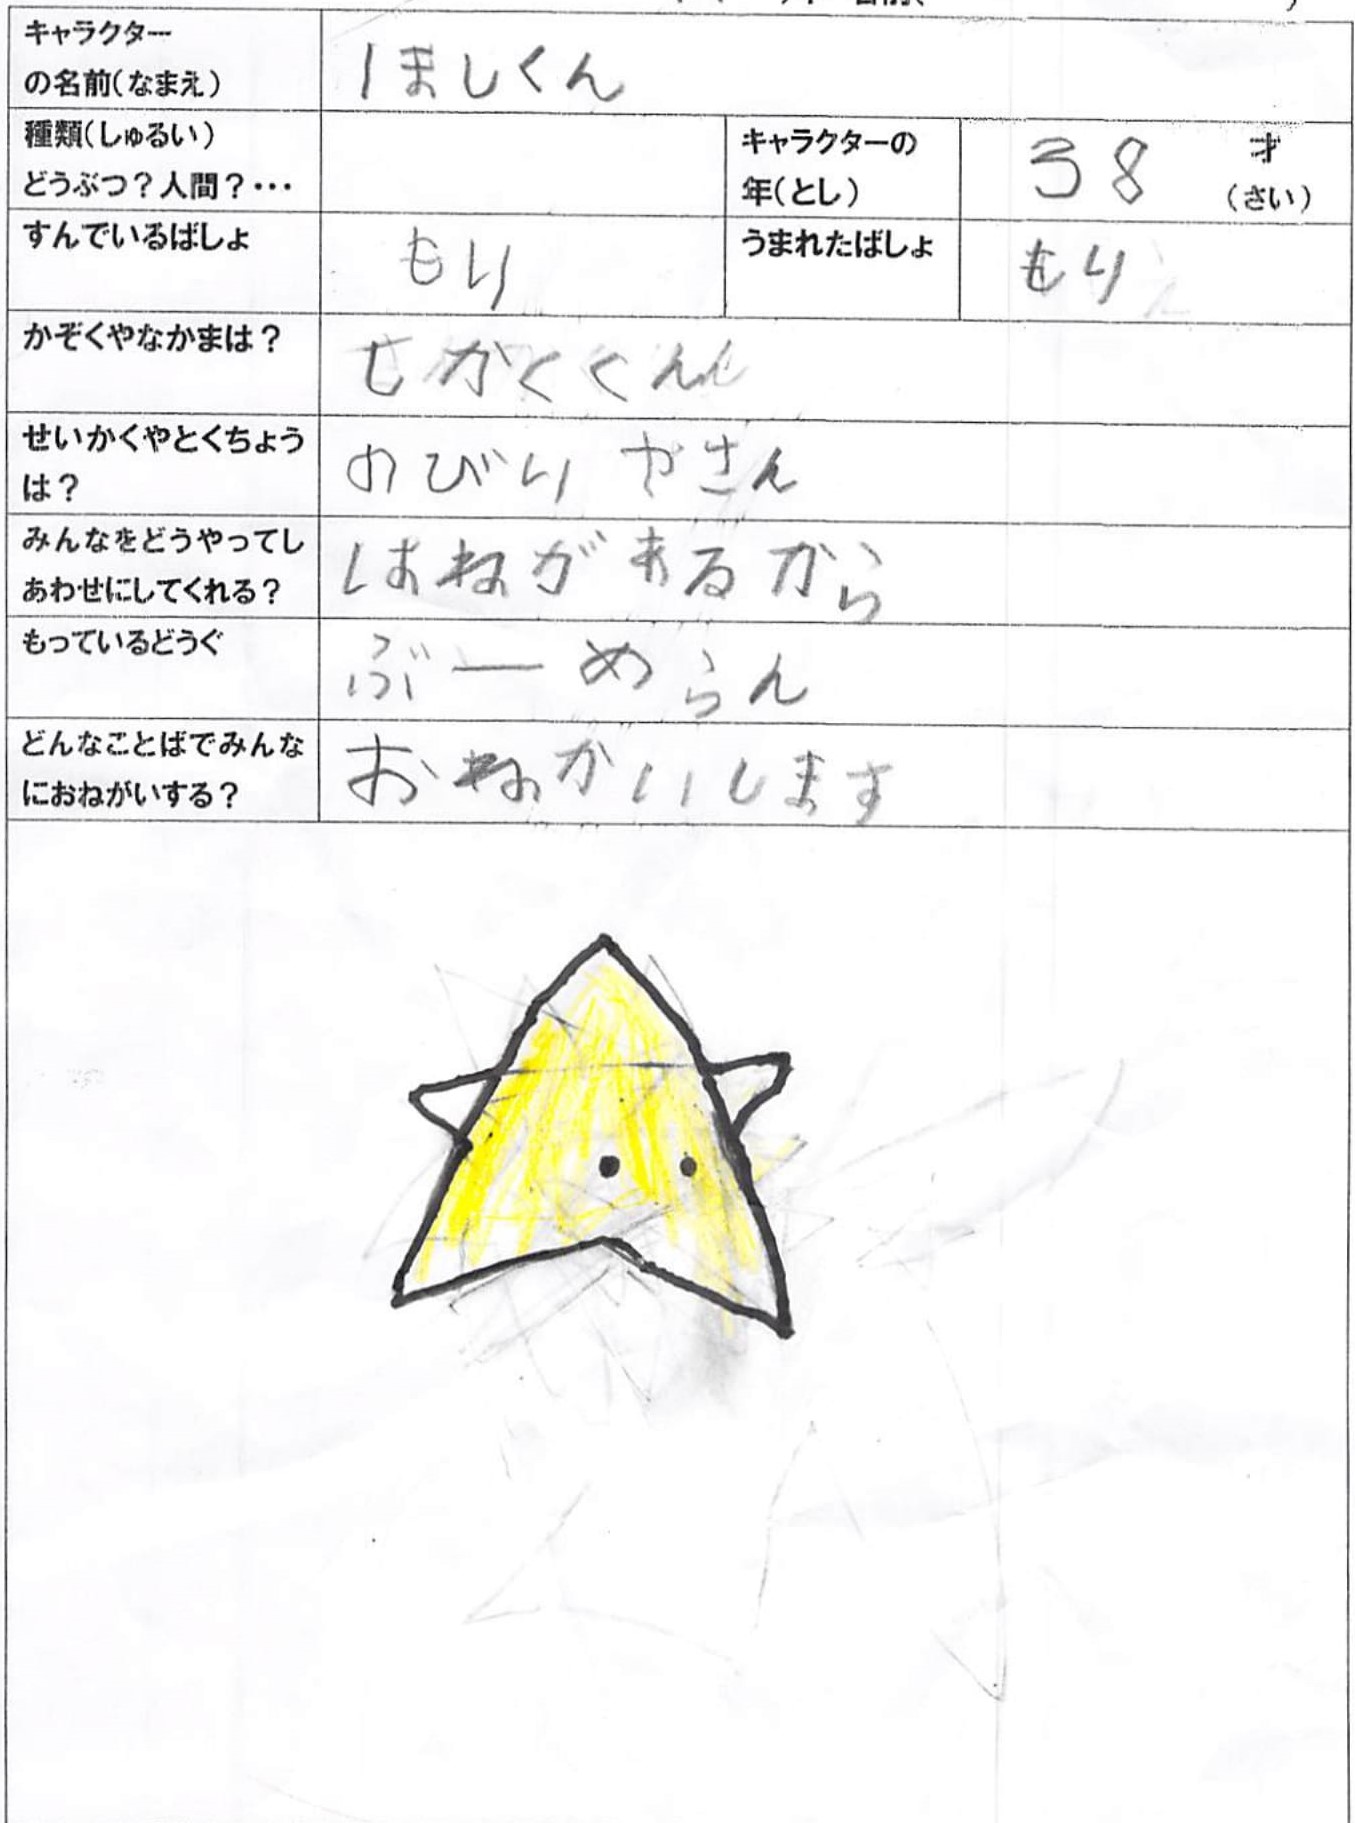 キャラクター
の名前(なまえ)
ほしくん
種類(しゅるい)
どうぶつ?人間?・・・
キャラクターの
年(とし)
38
才
(さい)
すんでいるばしょ
もり
うまれたばしょ
もり
かぞくやなかまは?
せいかくやとくちょう
は?
のびりやさん
みんなをどうやってし
あわせにしてくれる?
はねがあるから
もっているどうぐ
ぶーめらん
どんなことばでみんな
におねがいする?
おねかいします